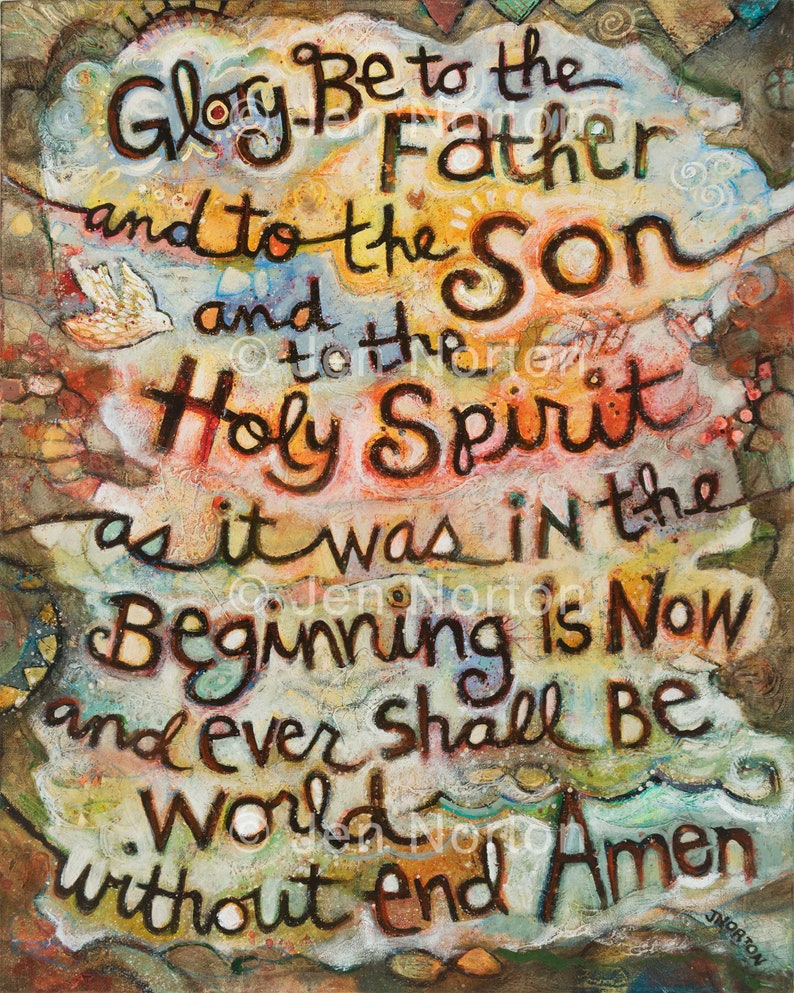 © Jen Norton
Glory Be to the
Father
and to the Son
and
to the
© Jen Norton
Holy Spirit
as it was iN the
© Jen Norton
Beginning is Now
and ever shall Be
world
© Jen Norton
without end Amen
JNORTON